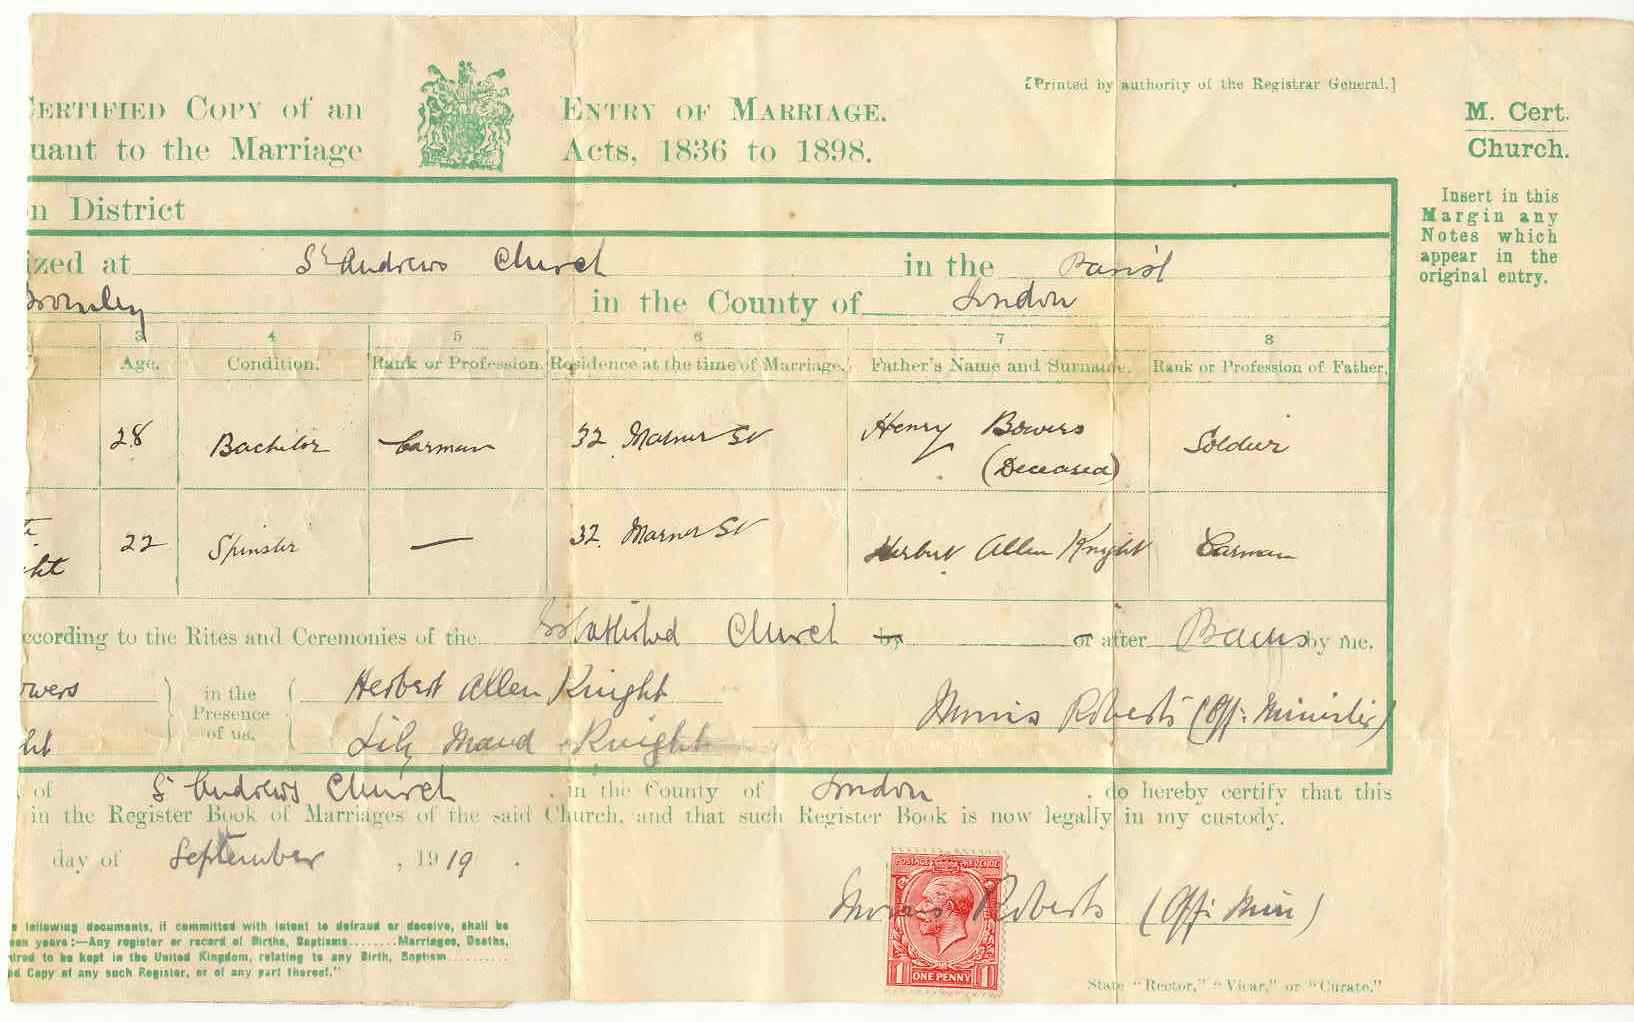 CERTIFIED COPY of an ENTRY OF MARRIAGE.
[Printed by authority of the Registrar General.]
M. Cert.
Church.
uant to the Marriage Acts, 1836 to 1898.
Insert in this
Margin any
Notes which
appear in the
original entry.
n District
ized at St Andrews Church in the Parish
Bromley in the County of London
3 4 5 6 7 8
Age. Condition. Rank or Profession. Residence at the time of Marriage. Father's Name and Surname. Rank or Profession of Father.
28 Bachelor Carman 32 Marner St Henry Bowers (Deceased) Soldier
ht 22 Spinster — 32 Marner St Herbert Allen Knight Carman
ccording to the Rites and Ceremonies of the Established Church by or after Banns by me.
owers in the Presence of us, Herbert Allen Knight
ght Lily Maud Knight
Morris Roberts (Off: Minister)
of St Andrews Church in the County of London do hereby certify that this
in the Register Book of Marriages of the said Church, and that such Register Book is now legally in my custody.
day of September, 1919.
Morris Roberts (Offi Min)
POSTAGE REVENUE
1 ONE PENNY 1
e following documents, if committed with intent to defraud or deceive, shall be
een years:—Any register or record of Births, Baptisms........Marriages, Deaths,
uired to be kept in the United Kingdom, relating to any Birth, Baptism..........
ed Copy of any such Register, or of any part thereof."
State "Rector," "Vicar," or "Curate."